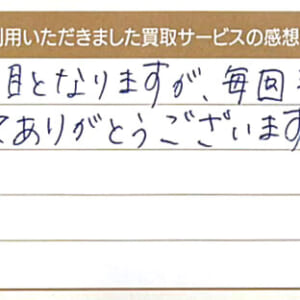 利用いただきました買取サービスの感想
目となりますが、毎回
てありがとうございます